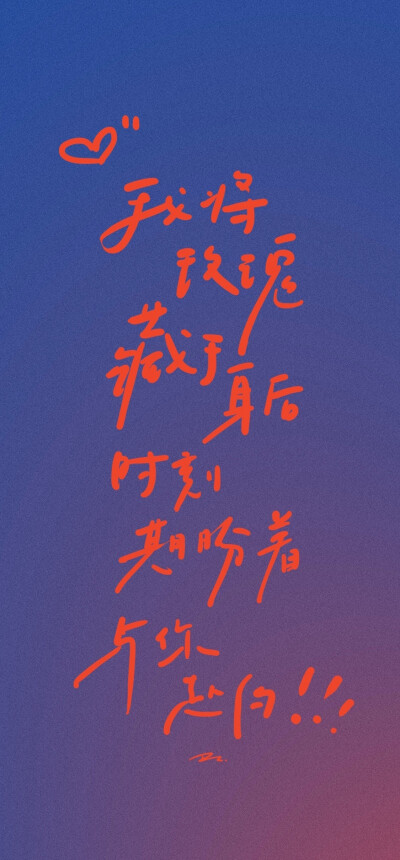 我将
玫瑰
藏于身后
时刻
期盼着
与你
赴约!!!